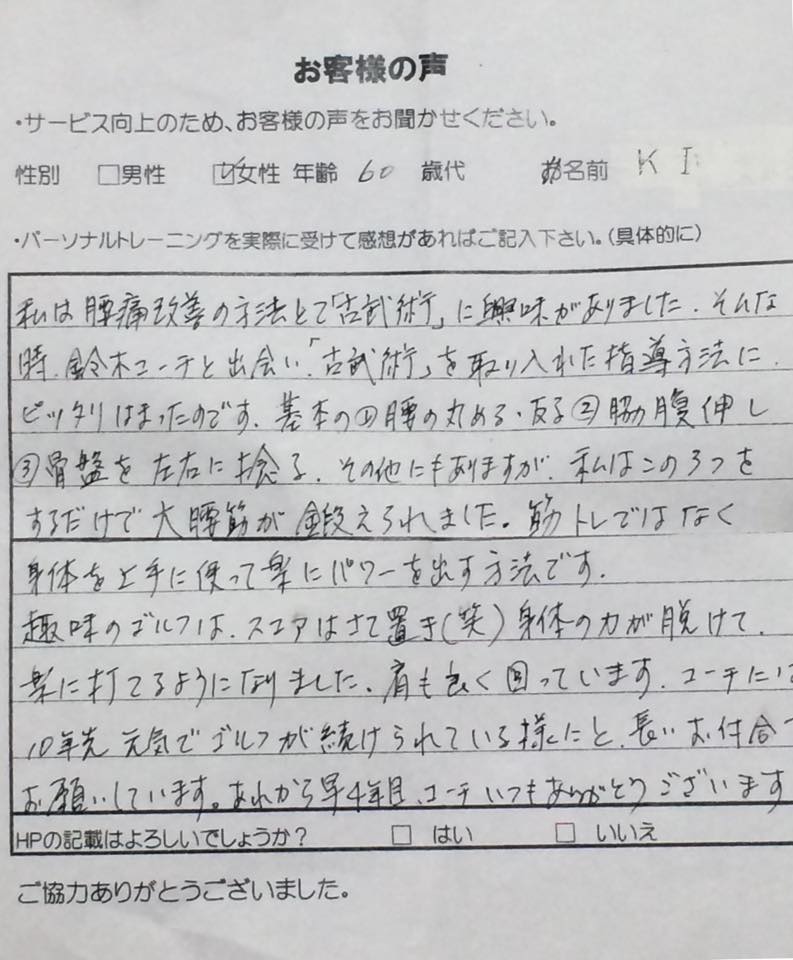 お客様の声
・サービス向上のため、お客様の声をお聞かせください。
性別 □男性 ☑女性 年齢 60 歳代 お名前 K I
・パーソナルトレーニングを実際に受けて感想があればご記入下さい。(具体的に)
私は腰痛改善の方法とて「古武術」に興味がありました。そんな
時、鈴木コーチと出会い「古武術」を取り入れた指導方法に、
ピッタリはまったのです。基本の①腰の丸める・反る②脇腹伸し
③骨盤を左右に捻る、その他にもありますが、私はこの3つを
するだけで大腰筋が鍛えられました。筋トレではなく
身体を上手に使って楽にパワーを出す方法です。
趣味のゴルフは、スコアはさて置き(笑)身体の力が脱けて、
楽に打てるようになりました。肩も良く回っています。コーチには
10年先元気でゴルフが続けられている様にと、長いお付合
お願いしています。あれから早4年目、コーチいつもありがとうございます
HPの記載はよろしいでしょうか? □ はい □ いいえ
ご協力ありがとうございました。